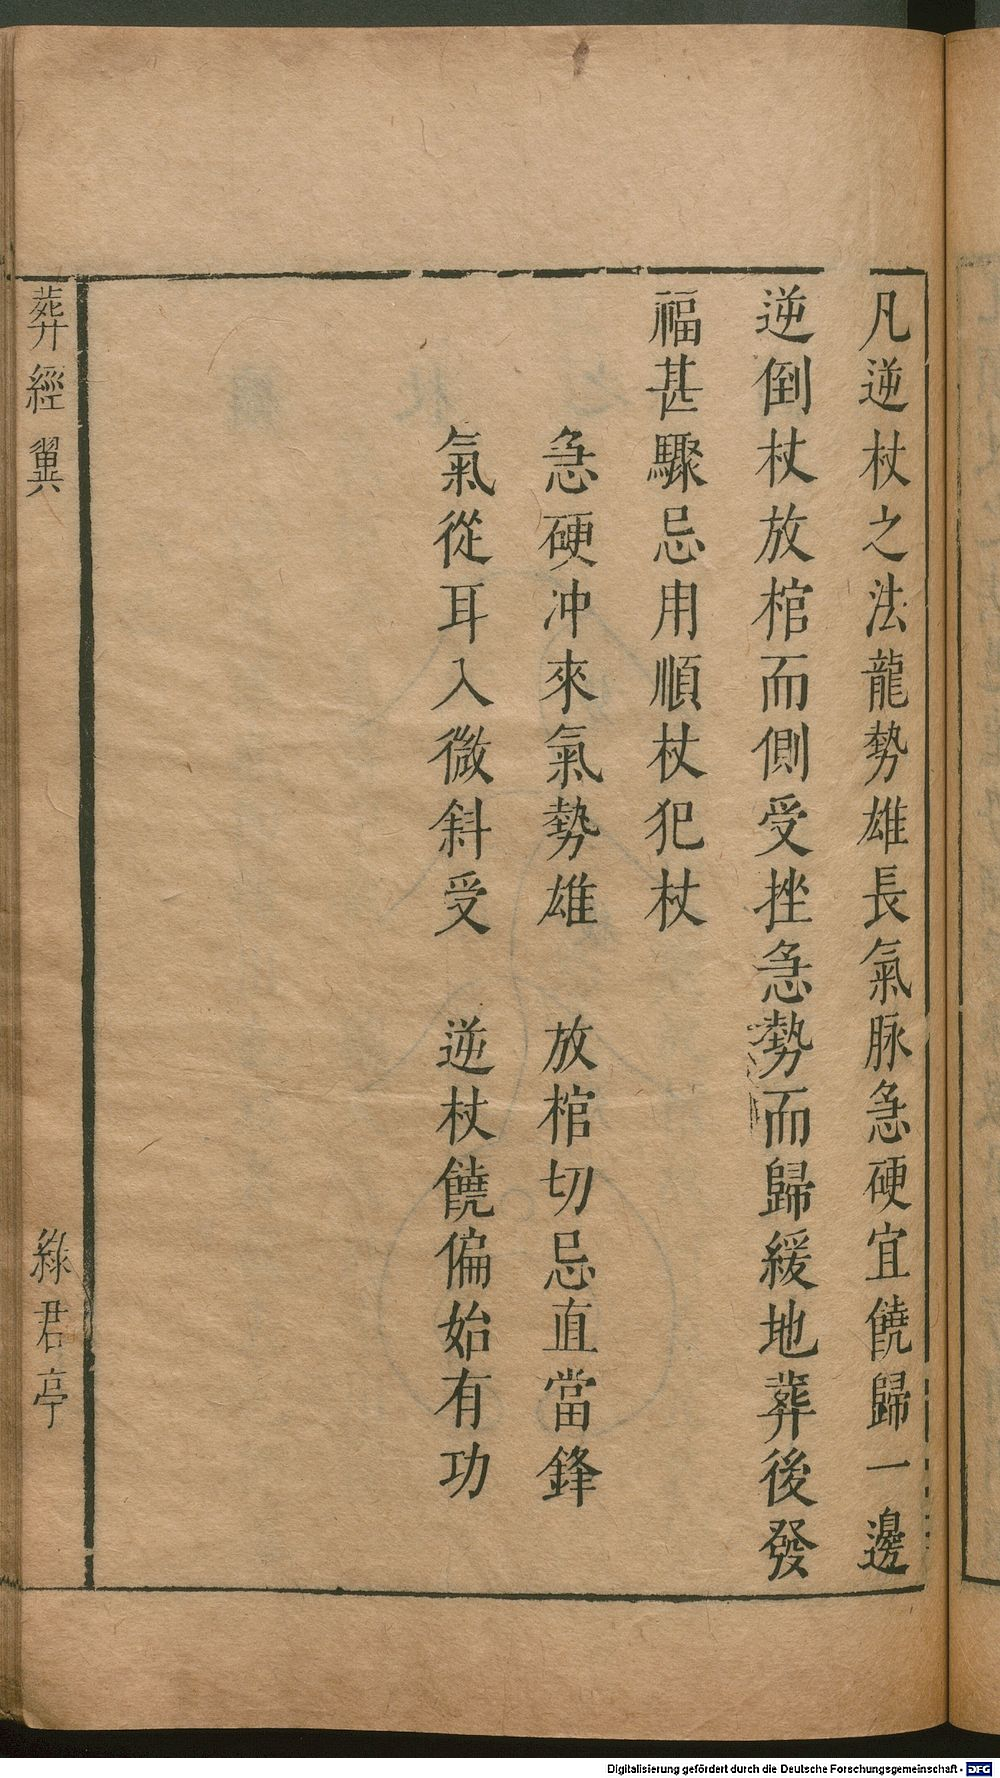 凡逆杖之法龍勢雄長氣脉急硬宜饒歸一邊
逆倒杖放棺而側受挫急勢而歸緩地葬後發
福甚驟忌用順杖犯杖
急硬冲來氣勢雄　放棺切忌直當鋒
氣從耳入微斜受　逆杖饒偏始有功
葬經翼　綠君亭
Digitalisierung gefördert durch die Deutsche Forschungsgemeinschaft - DFG